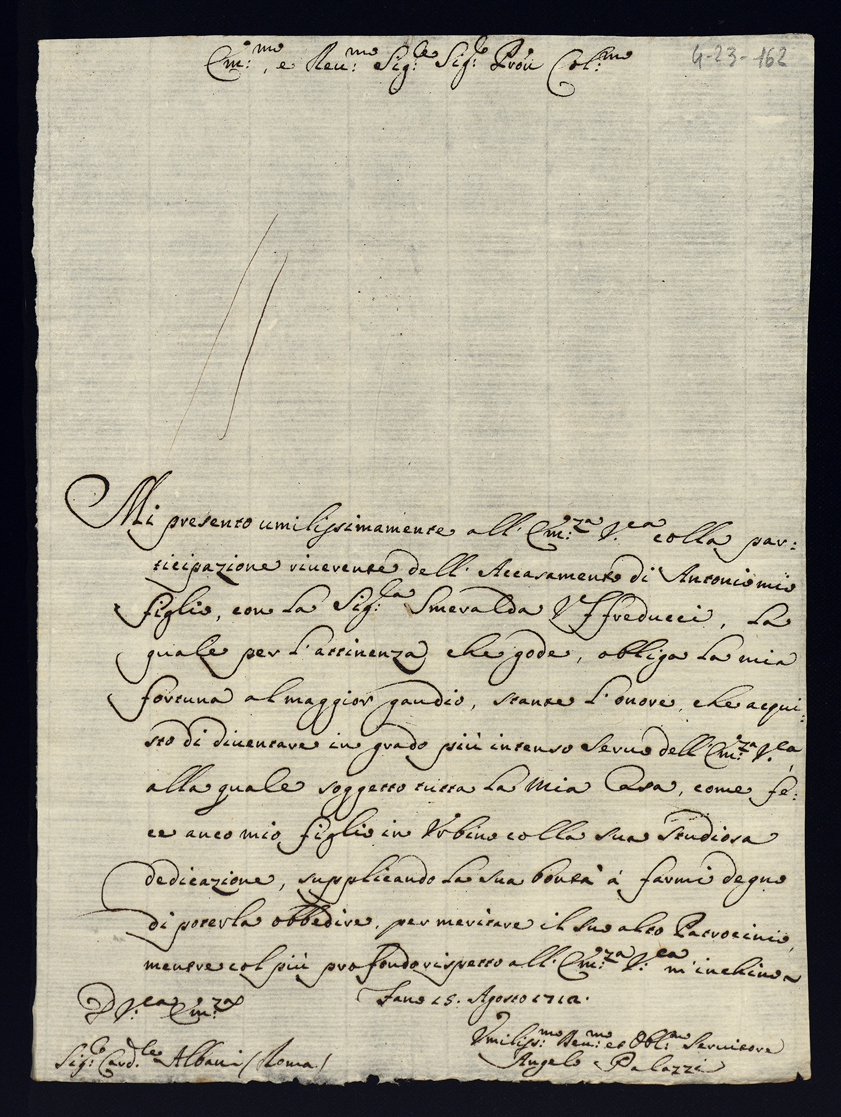 Em:mo, e Reu:mo Sig:re Sig:re Prōn Col:mo
4-23-162
Mi presento umilissimamente all' Em:za V:ra colla par:
ticipazione riverente dell' Accasamento di Antonio mio
figlio, con la Sig:ra Smeralda Uffreducci, la
quale per l'attinenza che gode, obliga la mia
fortuna al maggior gaudio, stante l'onore, che acqui:
sto di diventare in grado più intenso servo dell' Em:za V:ra,
alla quale soggetto tutta la mia Casa, come fe:
ce anco mio figlio in Urbino colla sua studiosa
dedicazione, supplicando la sua bontà à farmi degno
di poterla obbedire, per meritare il suo alto Patrocinio,
mentre col più profondo rispetto all' Em:za V:ra m'inchino
D V:ra Em:za Fano 15. Agosto 1712.
Umiliss:mo Reu:mo et Obl:mo Servitore
Sig:re Card:le Albani (Roma) Angelo Palazzi